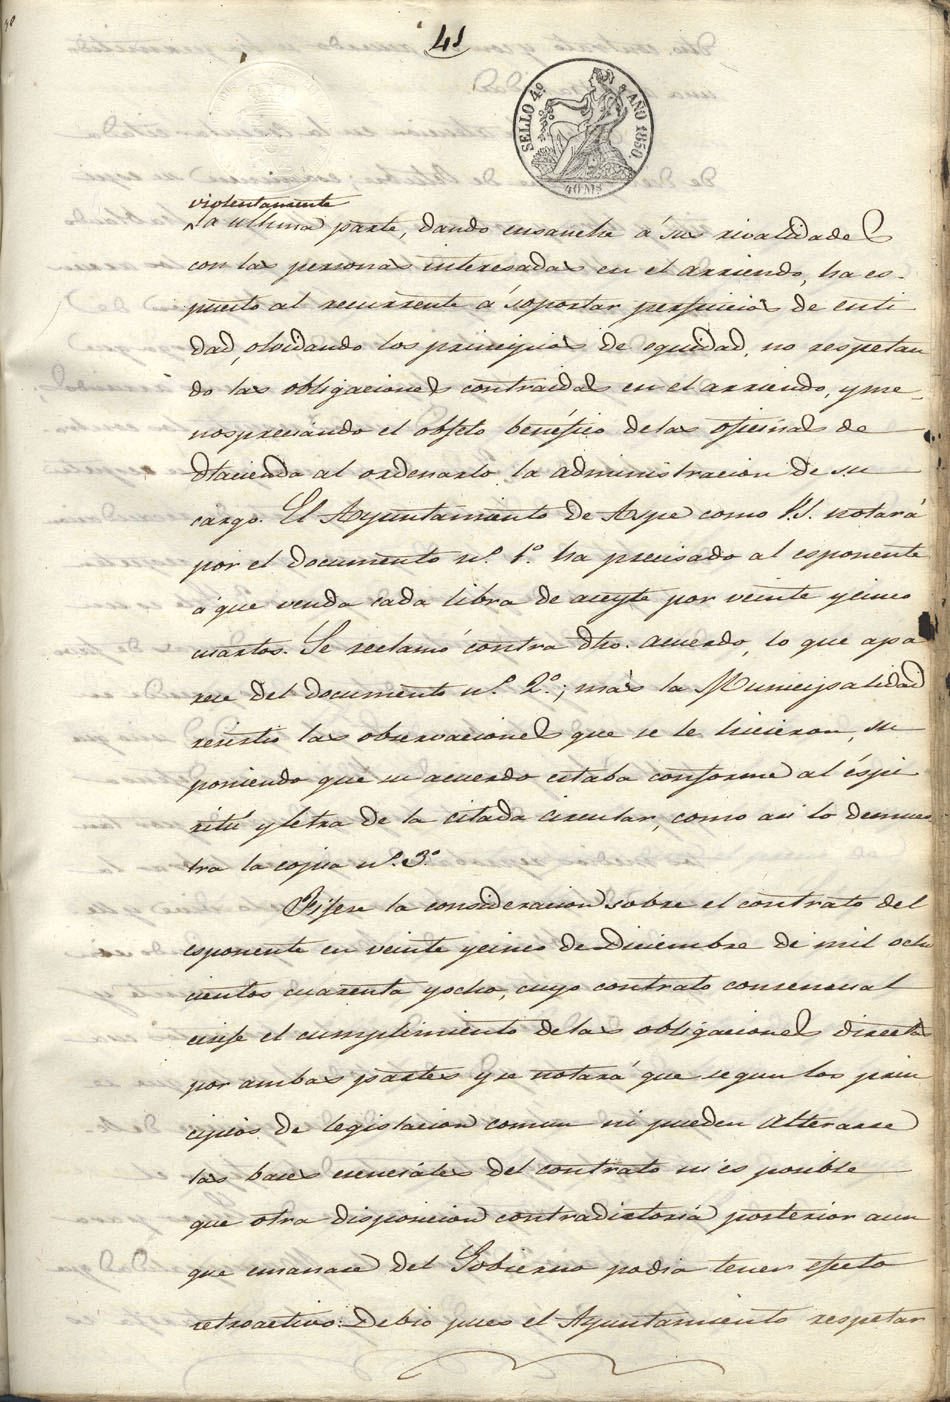 41
SELLO 4º AÑO 1850.
40 MS
violentamente
la ultima parte, dando ensanche á sus rivalidades
con las personas interesadas en el arriendo, ha es-
puesto al recurrente á soportar perjuicios de enti
dad, olvidando los principios de equidad, no respetan
do las obligaciones contraidas en el arriendo, y me-
nospreciando el objeto benéfico de las oficinas de
Hacienda al ordenarlo la administracion de su
cargo. El Ayuntamiento de Aspe como V.S. notará
por el documento nº. 1º. ha precisado al esponente
á que venda cada libra de aceyte por veinte y cinco
cuartos. Se reclamó contra dho. acuerdo, lo que apa
rece del documento nº. 2º.; más la Municipalidad
resistió las observaciones que se le hicieron, su
poniendo que su acuerdo estaba conforme al éspi
ritú y letra de la citada circular, como asi lo demues
tra la copia nº. 3º
Fijese la consideracion sobre el contrato del
esponente en veinte y cinco de Diciembre de mil ocho
cientos cuarenta y ocho, cuyo contrato consensual
exije el cumplimiento de las obligaciones directas
por ambas partes y se notará que segun los prin
cipios de legislacion comun ni pueden alterarse
las bases esenciales del contrato ni es posible
que otra disposicion contradictoria posterior aun
que emanase del Gobierno podia tener efecto
retroactivo: Debió pues el Ayuntamiento respetar